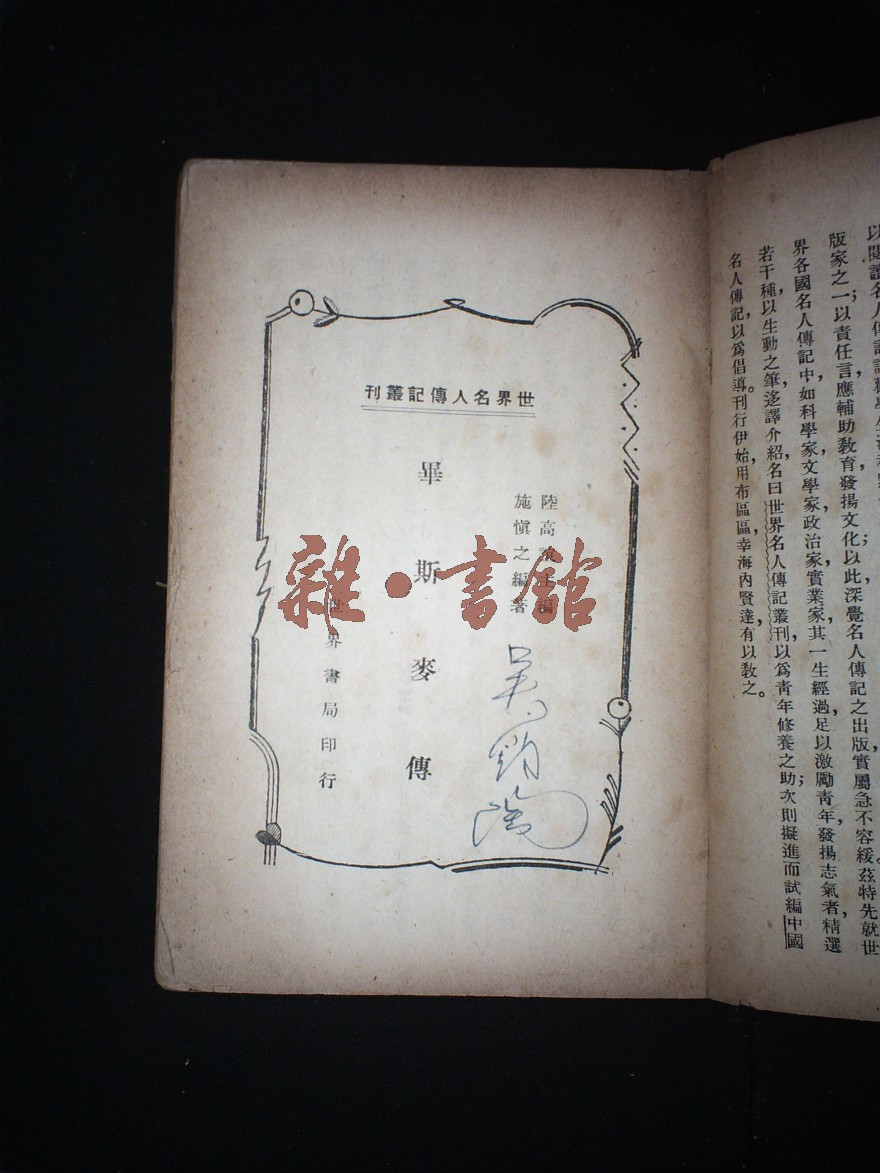 世界名人傳記叢刊
陸高誼主編
施愼之編著
畢斯麥傳
世界書局印行
吳鈞陶
雜·書館
版家之一；以責任言應輔助敎育發揚文化以此深覺名人傳記之出版實屬急不容緩。茲特先就世
界各國名人傳記中，如科學家文學家政治家實業家，其一生經過足以激勵靑年，發揚志氣者，精選
若干種，以生動之筆，迻譯介紹，名曰世界名人傳記叢刊，以爲靑年修養之助；次則擬進而試編中國
名人傳記，以爲倡導。刊行伊始，用布區區，幸海內賢達，有以敎之。